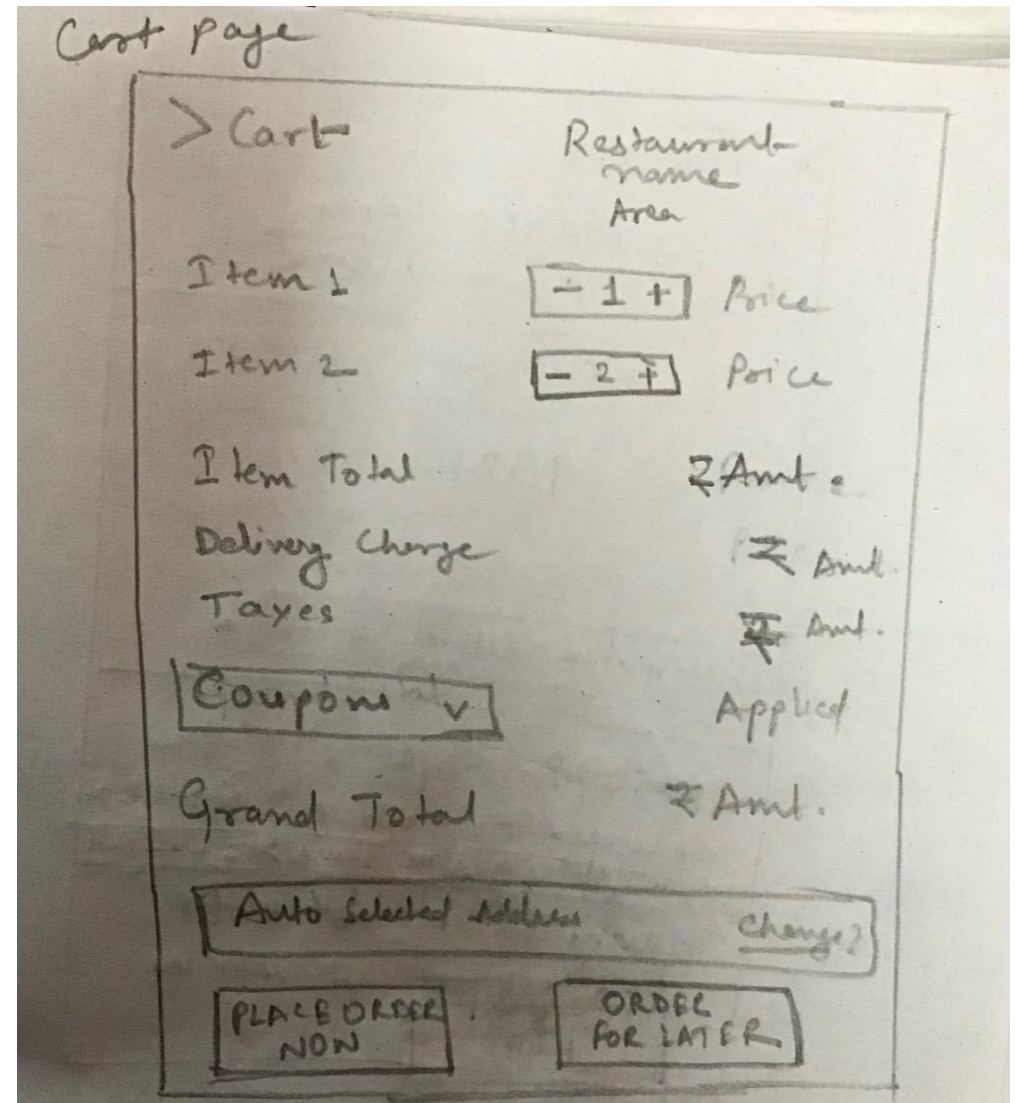 Cart page
> Cart
Restaurant
name
Area
Item 1 - 1 + Price
Item 2 - 2 + Price
Item Total ₹ Amt.
Delivery Charge ₹ Amt.
Taxes ₹ Amt.
Coupons v Applied
Grand Total ₹ Amt.
Auto Selected Address Change?
PLACE ORDER
NOW
ORDER
FOR LATER